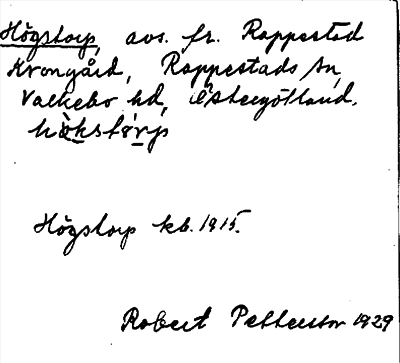 Högstorp, avs. fr. Rappestad
Krongård, Rappestads sn,
Valkebo hd, Östergötland.
hò̀kstórp
Högstorp kb. 1915.
Robert Pettersson 1929